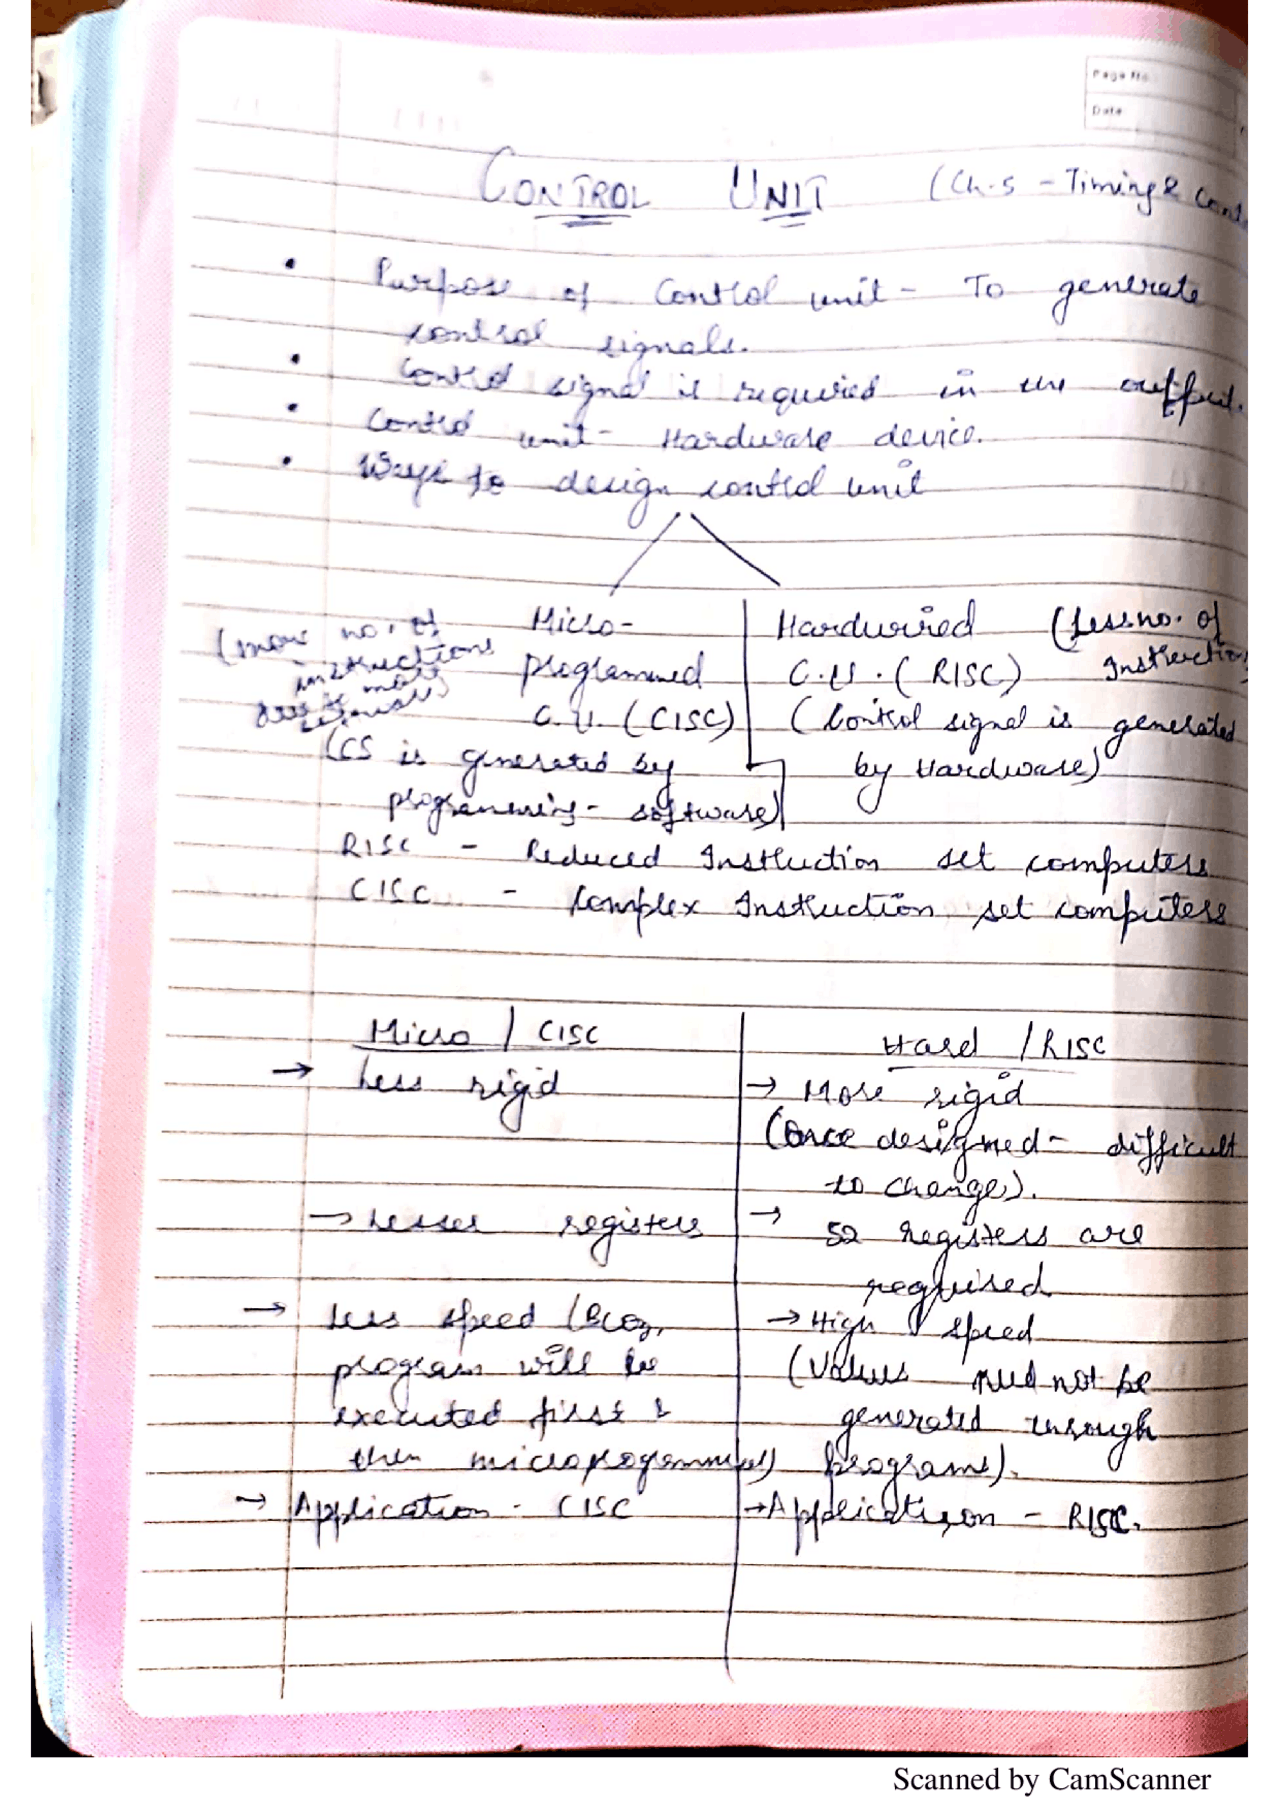 Page No.
Date
CONTROL UNIT (Ch-5 - Timing & Cont
• Purpose of Control unit - To generate
control signals.
• Control signal is required in the output.
• Control unit - Hardware device.
• Ways to design control unit
(more no. of instructions
Micro-programmed C.U. (CISC)
(CS is generated by
programming - software)
Hardwired C.U. (RISC)
(Less no. of Instruction
(Control signal is generated
by Hardware)
RISC - Reduced Instruction set computers
CISC - Complex Instruction set computers
Micro / CISC
→ Less rigid
→ Lesser registers
→ Less speed (Bcoz,
program will be
executed first &
then microprogrammed)
→ Application - CISC
Hard / RISC
→ More rigid
(Once designed - difficult
to change).
→ 52 registers are
required
→ High speed
(Values need not be
generated through
programs).
→ Application - RISC.
Scanned by CamScanner